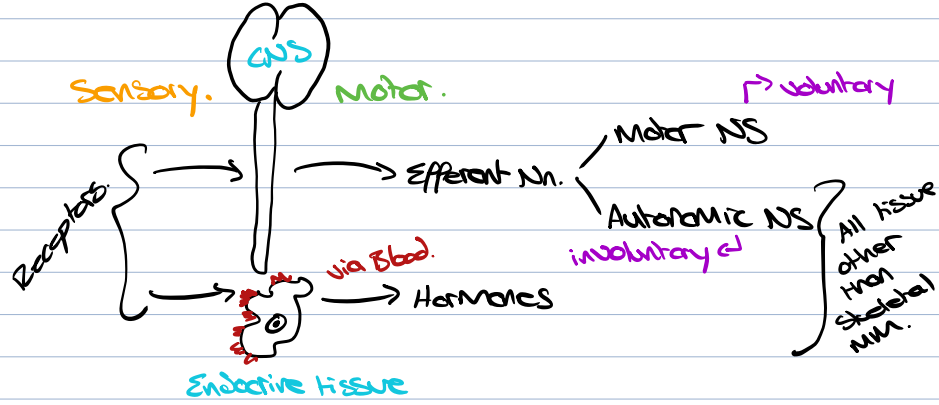 CNS
Sensory.
Motor.
voluntary
Motor NS
Efferent Nn.
Receptors.
Autonomic NS
involuntary
All tissue
other
than
skeletal
MM.
via Blood.
Hormones
Endocrine tissue